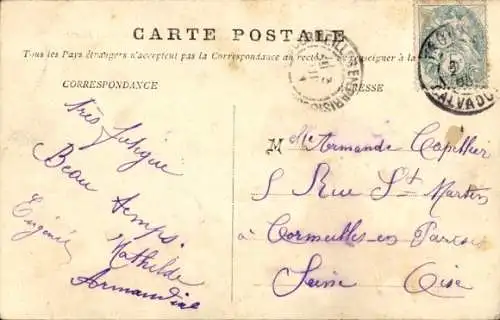 CARTE POSTALE
Tous les Pays étrangers n'acceptent pas la Correspondance au recto. Se renseigner à la
CORRESPONDANCE
ADRESSE
CORMEILLES-EN-PARISIS
CALVADOS
très fatigue
Beau temps.
Eugénie
Mathilde
Armandine
Mlle Armande Capellier
5 Rue St Martin
à Cormeilles en Parisis
Seine Oise